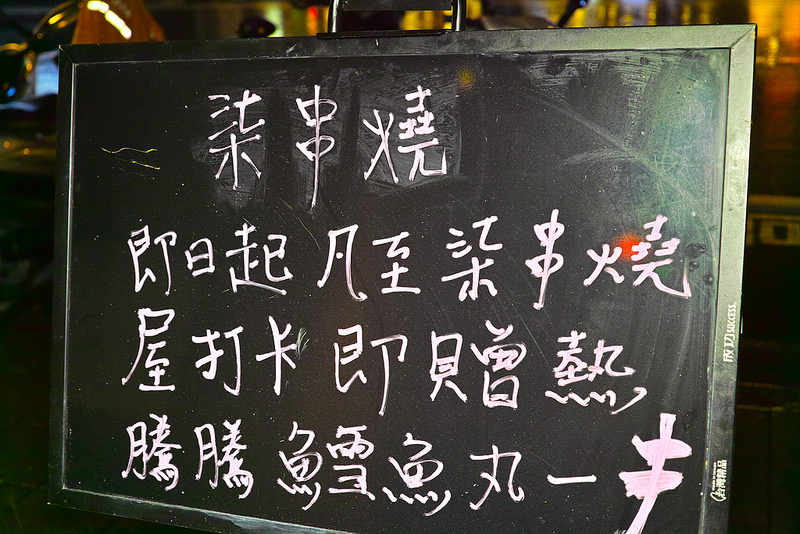 柒串燒
即日起凡至柒串燒
屋打卡即贈熱
騰騰鱈魚丸一
成功success
台灣精品